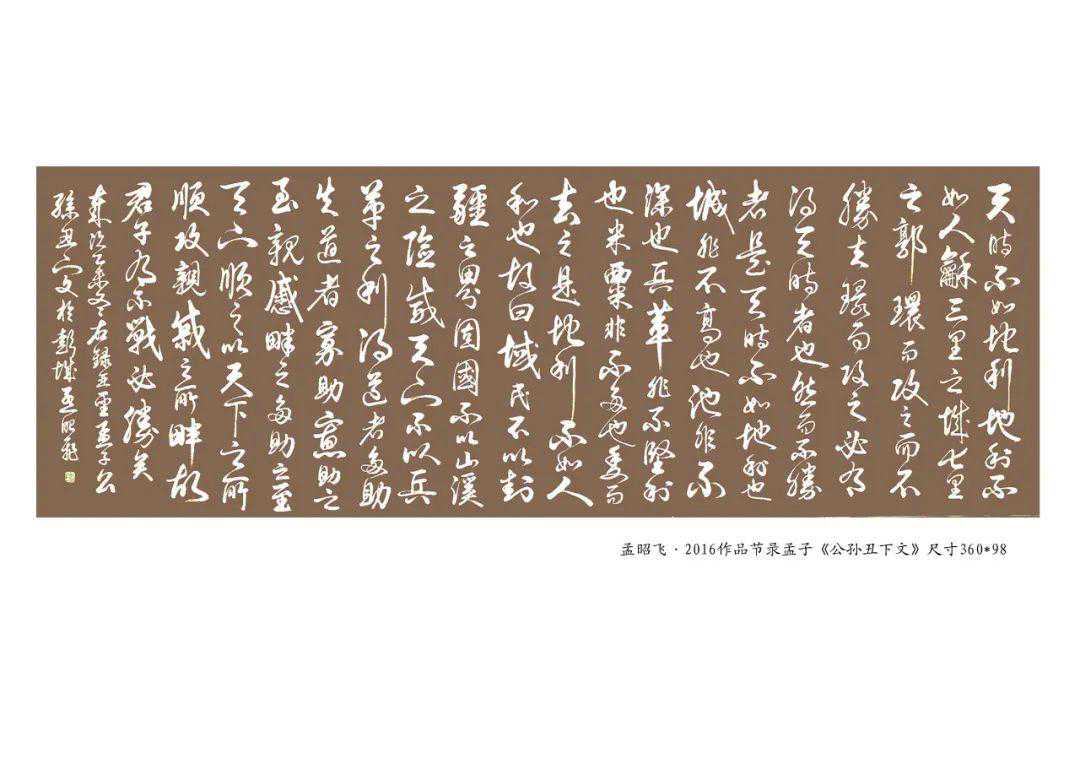 天時不如地利地利不
如人龢三里之城七里
之郭環而攻之而不
勝夫環而攻之必有
得天時者也然而不勝
者是天時不如地利也
城非不高也池非不
深也兵革非不堅利
也米粟非不多也委而
去之是地利不如人
和也故曰域民不以封
疆之界固國不以山溪
之險威天下不以兵
革之利得道者多助
失道者寡助寡助之
至親戚畔之多助之至
天下順之以天下之所
順攻親戚之所畔故
君子有不戰必勝矣
次乙未冬右録亞聖孟子公
孫丑下文於彭城孟昭飛
孟昭飞·2016作品节录孟子《公孙丑下文》尺寸360*98